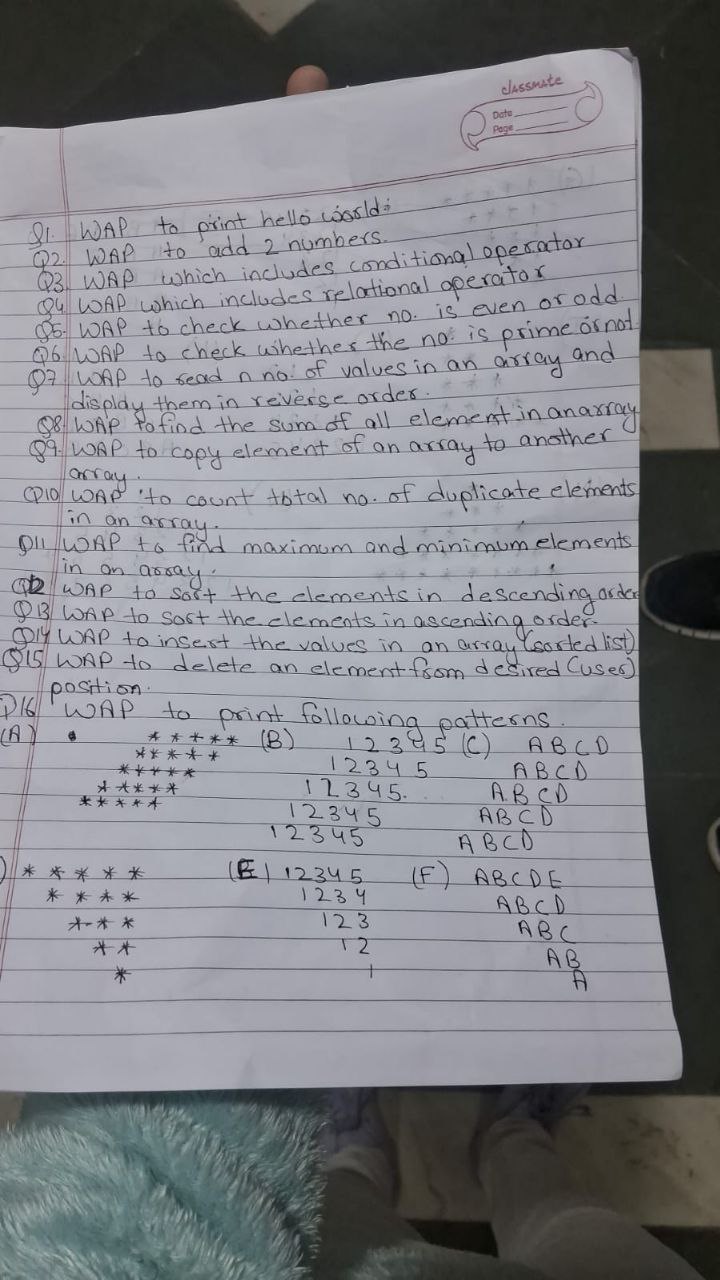 classmate
Date
Page
Q1. WAP to print hello world:
Q2. WAP to add 2 numbers.
Q3. WAP which includes conditional operator
Q4 WAP which includes relational operator
Q5. WAP to check whether no. is even or odd.
Q6. WAP to check whether the no. is prime or not
Q7. WAP to read n no. of values in an array and
display them in reverse order.
Q8. WAP to find the sum of all element in an array
Q9. WAP to copy element of an array to another
array.
Q10 WAP to count total no. of duplicate elements
in an array.
Q11 WAP to find maximum and minimum elements
in an array.
Q12 WAP to sort the elements in descending order
Q13 WAP to sort the elements in ascending order.
Q14 WAP to insert the values in an array (sorted list)
Q15 WAP to delete an element from desired (user)
position.
Q16 WAP to print following patterns.
(A) * * * * * (B) 1 2 3 4 5 (C) A B C D
* * * * * 1 2 3 4 5 A B C D
* * * * * 1 2 3 4 5. A.B C D
* * * * * 1 2 3 4 5 A B C D
* * * * * 1 2 3 4 5 A B C D
) * * * * * (E) 1 2 3 4 5 (F) A B C D E
* * * * 1 2 3 4 A B C D
* * * 1 2 3 A B C
* * 1 2 A B
* 1 A